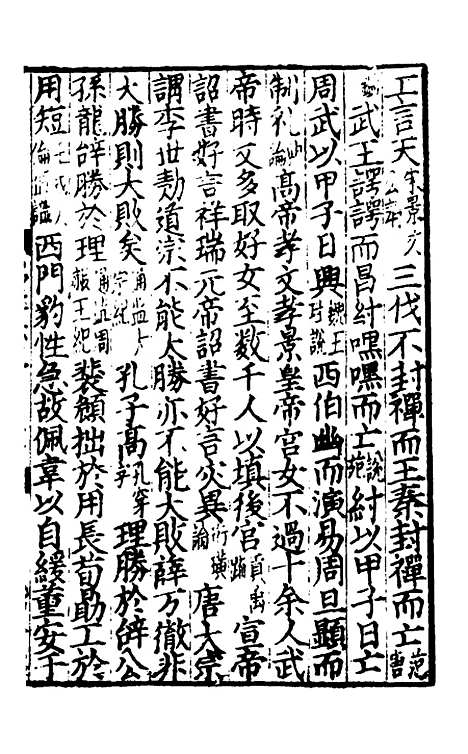 工言天 三伐不封禪而王秦封禪而亡
武王諤諤而昌紂嘿嘿而亡說苑紂以甲子日亡
周武以甲子日興魏王討說西伯幽而演易周旦顯而
制礼此論高帝孝文孝景皇帝宮女不過十余人武
帝時又多取好女至数千人以填後宮貢禹 宣帝
詔書好言祥瑞元帝詔書好言灾異 唐太宗
謂李世勣道宗不能大勝亦不能大敗薛万徹非
大勝則大敗矣 孔子高孔穿理勝於辞公
孫龍辞勝於理通鑑周赧王紀裴頠拙於用長荀勗工於
用短 西門豹性急故佩韋以自緩董安于